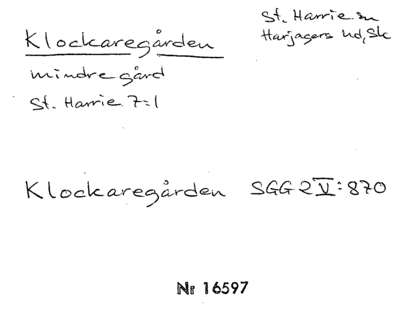 Klockaregården
St. Harrie sn
Harjagers hd, Sk
mindre gård
St. Harrie 7=1
Klockaregården SGG 2 V: 870
Nr 16597